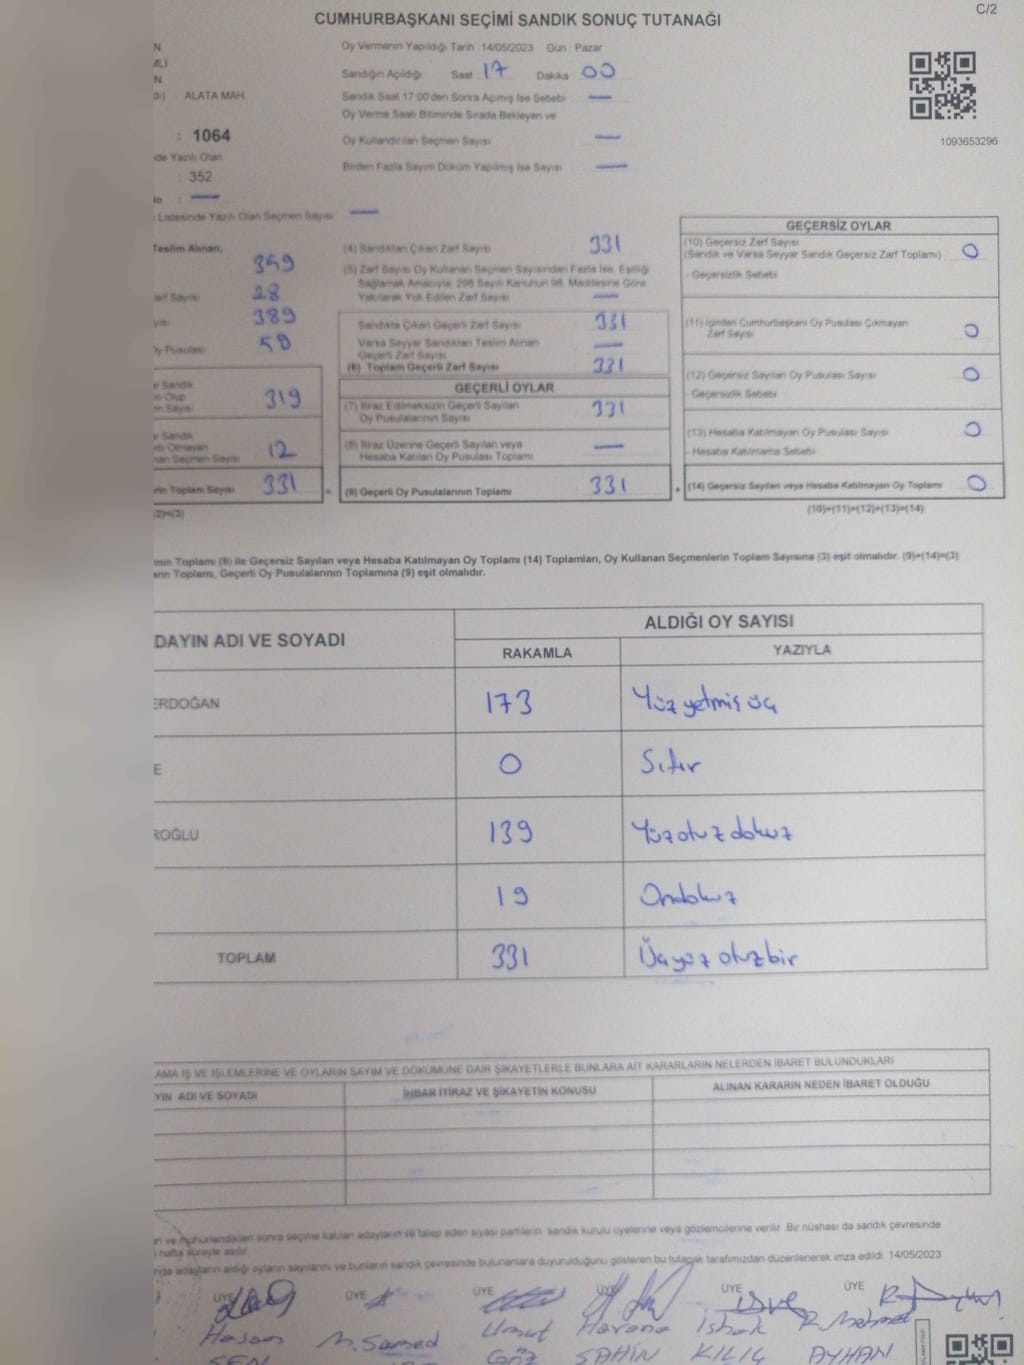 C/2
CUMHURBAŞKANI SEÇİMİ SANDIK SONUÇ TUTANAĞI
N
MLİ
N
di) ALATA MAH.
: 1064
de Yazılı Olan
: 352
Oy Vermenin Yapıldığı Tarih : 14/05/2023 Gün : Pazar
Sandığın Açıldığı Saat : 17 Dakika : 00
Sandık Saat 17:00'den Sonra Açılmış İse Sebebi : —
Oy Verme Saati Bitiminde Sırada Bekleyen ve
Oy Kullandırılan Seçmen Sayısı —
Birden Fazla Sayım Döküm Yapılmış İse Sayısı : —
1093653296
Listesinde Yazılı Olan Seçmen Sayısı : —
Teslim Alınan;
359
arf Sayısı 28
389
Oy Pusulası 58
e Sandık
319
n Sayısı
e Sandık
Olmayan
nan Seçmen Sayısı 12
rin Toplam Sayısı 331
(2)=(3)
(4) Sandıktan Çıkan Zarf Sayısı 331
(5) Zarf Sayısı Oy Kullanan Seçmen Sayısından Fazla İse, Eşitliği
Sağlamak Amacıyla, 298 Sayılı Kanunun 98. Maddesine Göre
Yakılarak Yok Edilen Zarf Sayısı —
Sandıkta Çıkan Geçerli Zarf Sayısı 331
Varsa Seyyar Sandıktan Teslim Alınan
Geçerli Zarf Sayısı —
(6) Toplam Geçerli Zarf Sayısı 331
GEÇERLİ OYLAR
(7) İtiraz Edilmeksizin Geçerli Sayılan
Oy Pusulalarının Sayısı 331
(8) İtiraz Üzerine Geçerli Sayılan veya
Hesaba Katılan Oy Pusulası Toplamı —
(9) Geçerli Oy Pusulalarının Toplamı 331
GEÇERSİZ OYLAR
(10) Geçersiz Zarf Sayısı
(Sandık ve Varsa Seyyar Sandık Geçersiz Zarf Toplamı) 0
- Geçersizlik Sebebi
(11) İçinden Cumhurbaşkanı Oy Pusulası Çıkmayan
Zarf Sayısı 0
(12) Geçersiz Sayılan Oy Pusulası Sayısı 0
- Geçersizlik Sebebi
(13) Hesaba Katılmayan Oy Pusulası Sayısı 0
- Hesaba Katılmama Sebebi
(14) Geçersiz Sayılan veya Hesaba Katılmayan Oy Toplamı 0
(10)+(11)+(12)+(13)=(14)
nın Toplamı (9) ile Geçersiz Sayılan veya Hesaba Katılmayan Oy Toplamı (14) Toplamları, Oy Kullanan Seçmenlerin Toplam Sayısına (3) eşit olmalıdır. (9)+(14)=(3)
arın Toplamı, Geçerli Oy Pusulalarının Toplamına (9) eşit olmalıdır.
DAYIN ADI VE SOYADI
ALDIĞI OY SAYISI
RAKAMLA YAZIYLA
ERDOĞAN 173 Yüzyetmişüç
E 0 Sıfır
ROĞLU 139 Yüzotuzdokuz
19 Ondokuz
TOPLAM 331 Üçyüzotuzbir
AMA İŞ VE İŞLEMLERİNE VE OYLARIN SAYIM VE DÖKÜMÜNE DAİR ŞİKAYETLERLE BUNLARA AİT KARARLARIN NELERDEN İBARET BULUNDUKLARI
YIN ADI VE SOYADI İHBAR İTİRAZ VE ŞİKAYETİN KONUSU ALINAN KARARIN NEDEN İBARET OLDUĞU
n ve mühürlendikten sonra seçime katılan adayların ve talep eden siyasi partilerin sandık kurulu üyelerine veya gözlemcilerine verilir. Bir nüshası da sandık çevresinde
hafta süreyle asılır.
adayların aldığı oyların sayılarını ve bunların sandık çevresinde bulunanlara duyurulduğunu gösteren bu tutanak tarafımızdan düzenlenerek imza edildi. 14/05/2023
ÜYE ÜYE ÜYE ÜYE ÜYE ÜYE
Hasan M. Samed Umut Harana İshak R. Mehmet
ŞEN GÖZ ŞAHİN KILIÇ AYHAN